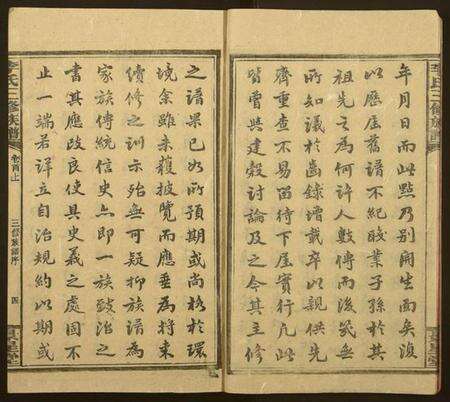 年月日而此點乃別開生面矣復
以歷屆舊譜不紀職業子孫於其
祖先之為何許人數傳而後幾無
所知議於齒錄增載卒以親供先
齊重查不易留待下屆實行凡此
皆嘗與建毅討論及之今其主修
之譜果已如所預期或尚格於環
境余雖未獲披覽而應垂為將來
續修之訓示殆無可疑抑族譜為
家族傳統信史亦即一族政治之
書其應改良使具史義之處固不
止一端若詳立自治規約以期或
李氏三修族譜
卷首上
三修族譜序
四